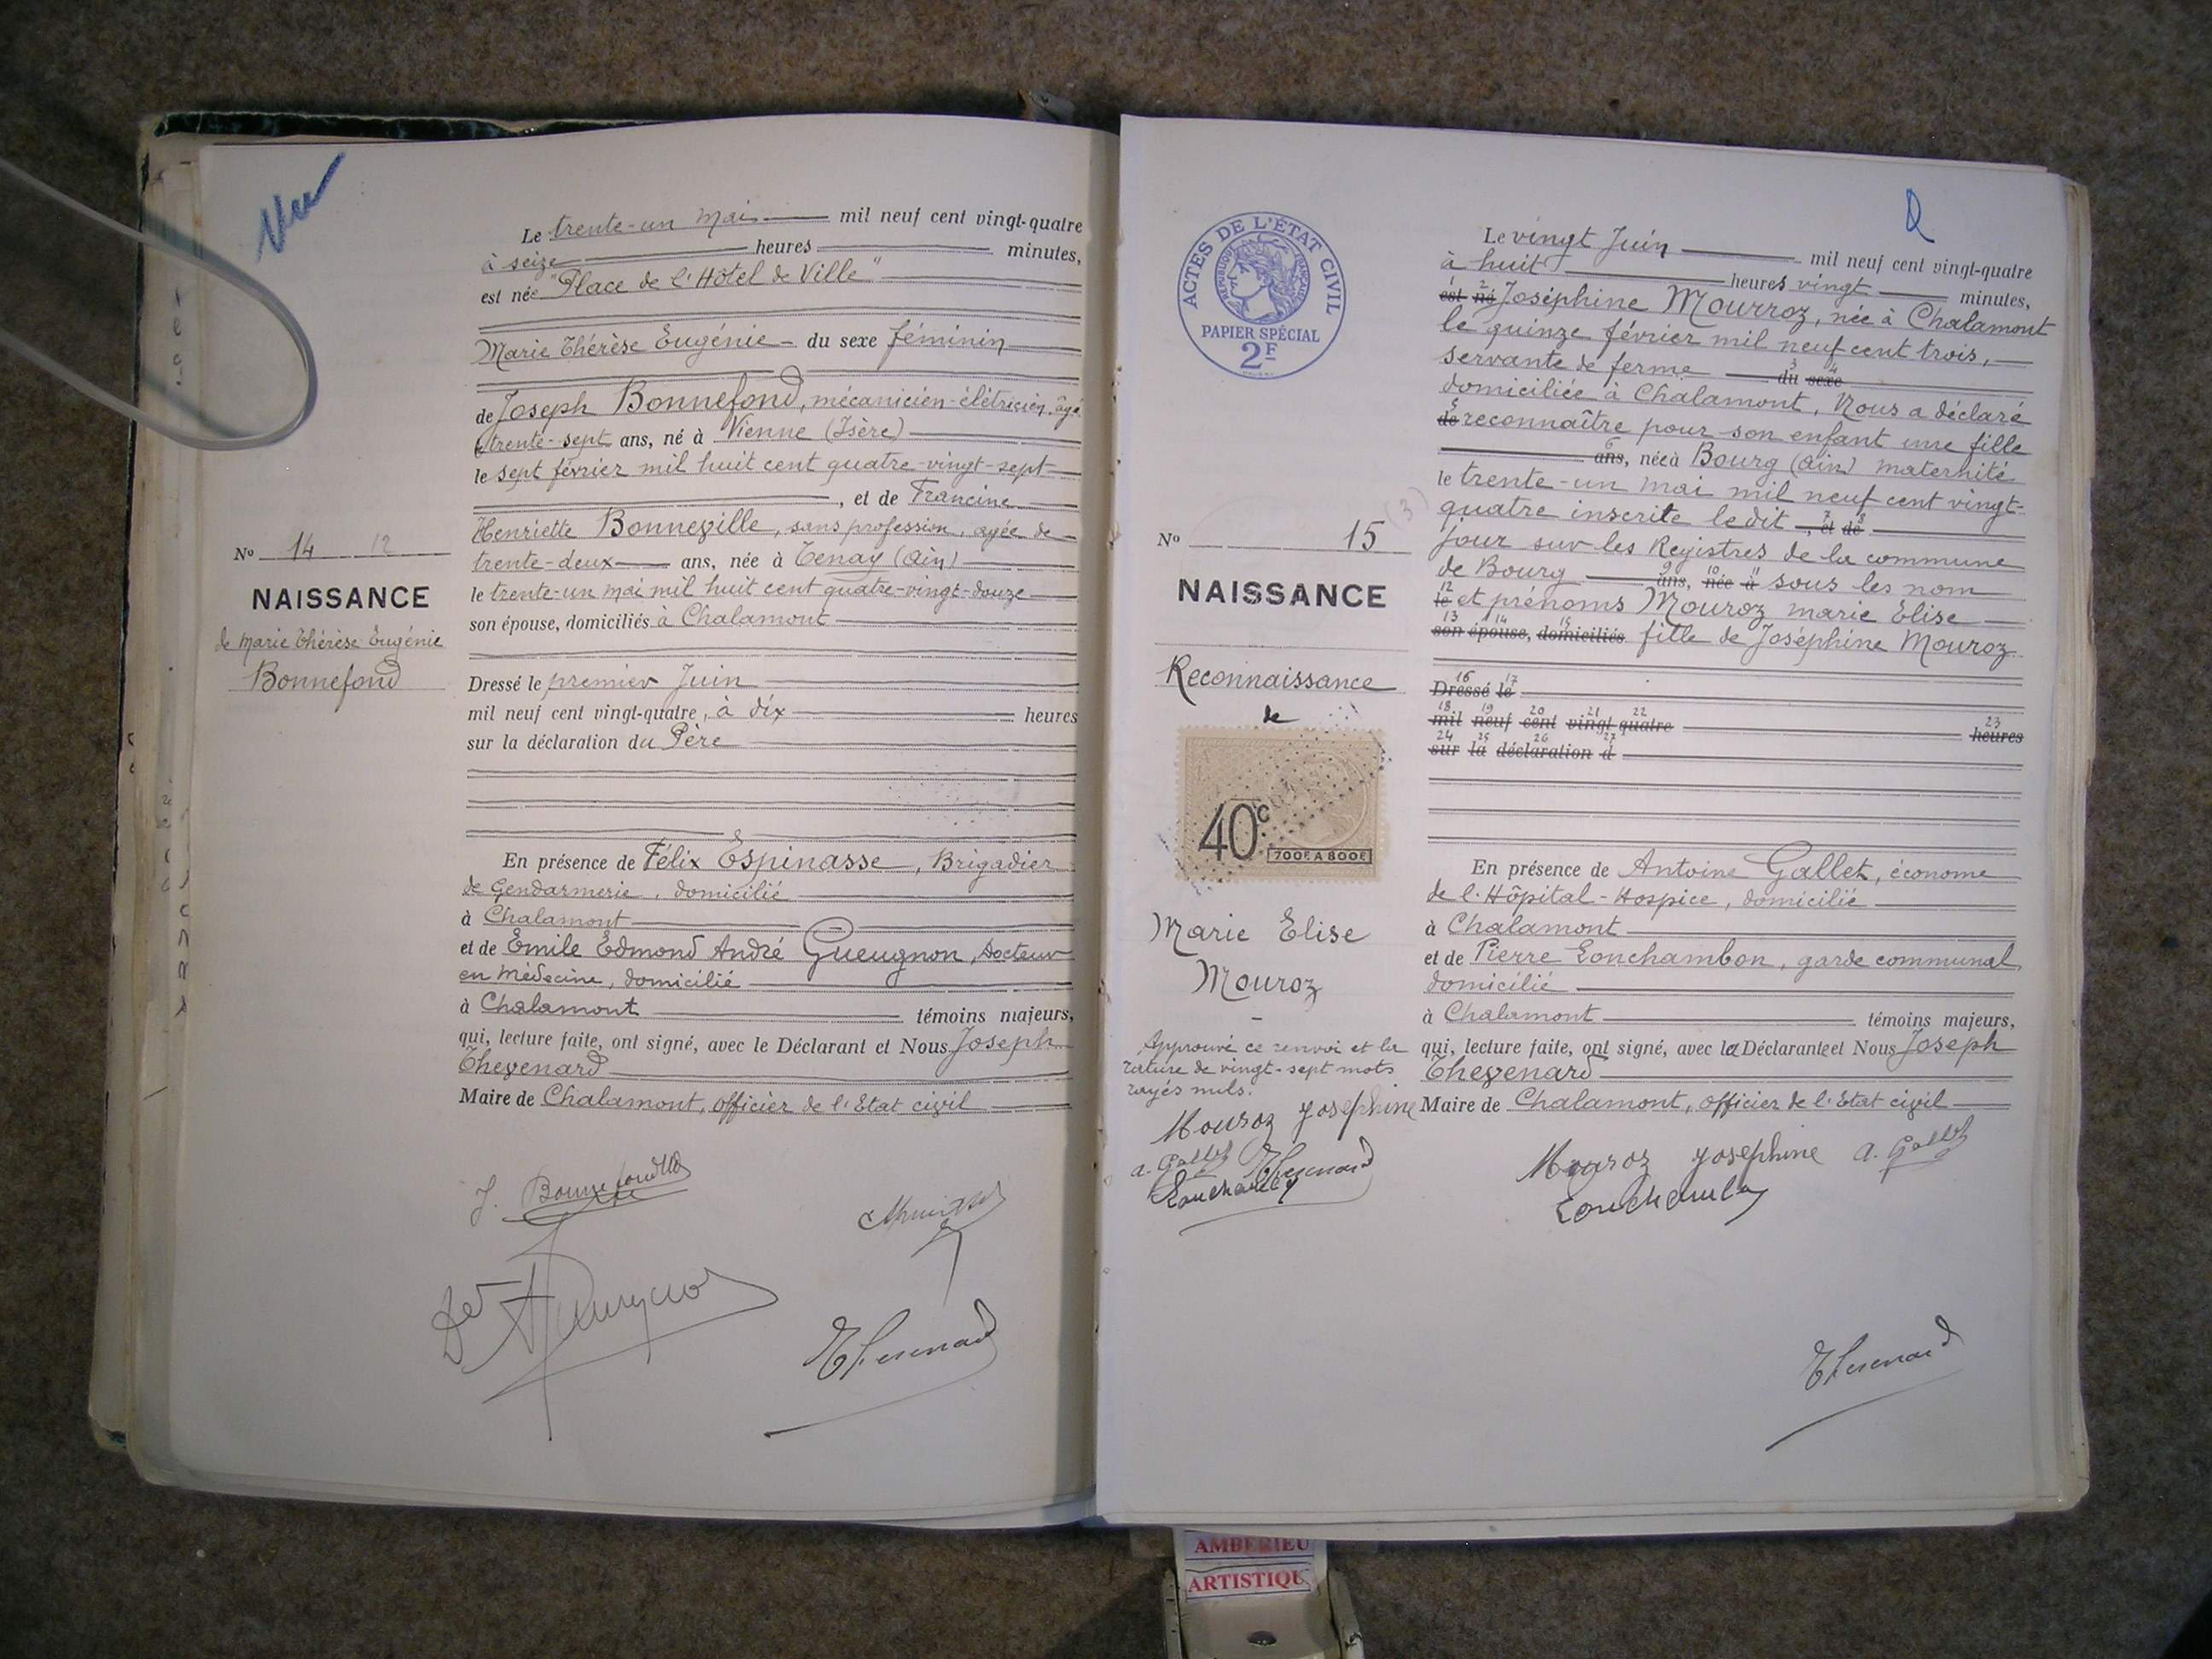 Vu
Le trente-un Mai mil neuf cent vingt-quatre
à seize heures minutes,
est née "Place de l'Hôtel de Ville"
Marie Thérèse Eugénie du sexe féminin
de Joseph Bonnefond, mécanicien-élétricien, âgé
trente-sept ans, né à Vienne (Isère)
le sept février mil huit cent quatre-vingt-sept
, et de Francine
Henriette Bonneville, sans profession, agée de
trente-deux ans, née à Tenay (Ain)
le trente-un mai mil huit cent quatre-vingt-douze
son épouse, domiciliés à Chalamont
Nº 14 12
NAISSANCE
de Marie Thérèse Eugénie
Bonnefond
Dressé le premier Juin
mil neuf cent vingt-quatre, à dix heures
sur la déclaration du Père
En présence de Félix Espinasse, Brigadier
de Gendarmerie, domicilié
à Chalamont
et de Emile Edmond André Gueugnon, Docteur
en Médecine, domicilié
à Chalamont témoins majeurs,
qui, lecture faite, ont signé, avec le Déclarant et Nous Joseph
Thevenard
Maire de Chalamont, officier de l'Etat civil
J. Bonnefond
Thevenard
ACTES DE L'ÉTAT CIVIL
RÉPUBLIQUE FRANÇAISE
PAPIER SPÉCIAL
2F
Le vingt Juin mil neuf cent vingt-quatre
à huit heures vingt minutes,
est né Joséphine Mourroz, née à Chalamont
le quinze février mil neuf cent trois,
servante de ferme du sexe
domiciliée à Chalamont, Nous a déclaré
de reconnaître pour son enfant une fille
ans, née à Bourg (Ain) maternité
le trente-un mai mil neuf cent vingt-
quatre inscrite ledit , et de
jour sur les Registres de la commune
de Bourg ans, née à sous les nom
le et prénoms Mouroz Marie Elise
son épouse, domiciliés fille de Joséphine Mouroz
Dressé le
mil neuf cent vingt quatre heures
sur la déclaration d
Nº 15 (3)
NAISSANCE
Reconnaissance
de
40c
700F A 800F
Marie Elise
Mouroz
Approuvé ce renvoi et la
rature de vingt-sept mots
rayés nuls.
Mouroz Josephine
a. Gallet Thevenard
Lonchambon
En présence de Antoine Gallet, économe
de l'Hôpital-Hospice, domicilié
à Chalamont
et de Pierre Lonchambon, garde communal,
domicilié
à Chalamont témoins majeurs,
qui, lecture faite, ont signé, avec la Déclarante et Nous Joseph
Thevenard
Maire de Chalamont, officier de l'Etat civil
Mouroz Josephine a. Gallet
Lonchambon
Thevenard
AMBERIEU
ARTISTIQU